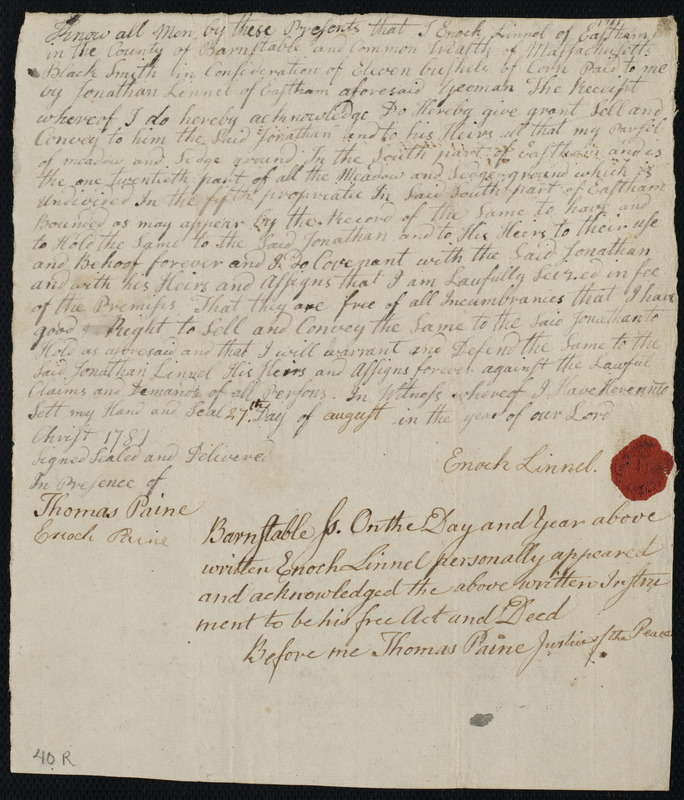 Know all Men by these Presents that I Enoch Linnel of Eastham
in the County of Barnstable and Common wealth of Massachusetts
Black Smith in Consideration of Eleven bushels of Corn Paid to me
by Jonathan Linnel of Eastham aforesaid Yeoman The Receipt
whereof I do hereby acknowledge Do Hereby give grant Sell and
Convey to him the Said Jonathan and to his Heirs all that my Parsel
of meadow and Sedge ground In the South part of Eastham and is
the one twentieth part of all the Meadow and Sedge ground which is
undevided In the fifth propriatie In Said South part of Eastham
Bounded as may appear by the Record of the Same to have and
to Hold the Same to the Said Jonathan and to His Heirs to their use
and Behoof forever and I do Covenant with the Said Jonathan
and with his Heirs and Assigns that I am Lawfully Seized in fee
of the Premises That they are free of all Incumbrances that I have
good Right to Sell and Convey the Same to the Said Jonathan to
Hold as aforesaid and that I will warrant and Defend the Same to the
Said Jonathan Linnel His Heirs and Assigns forever against the Lawful
Claims and Demands of all Persons. In Witness whereof I Have Hereunto
Sett my Hand and Seal 27th Day of august in the year of our Lord
Christ 1781
Signed Sealed and Delivered
In Presence of
Enoch Linnel.
Thomas Paine
Enoch Paine
Barnstable Ss. On the Day and Year above
written Enoch Linnel personally appeared
and acknowledged the above written Instru
ment to be his free Act and Deed
Before me Thomas Paine Justice of the Peace
40 R